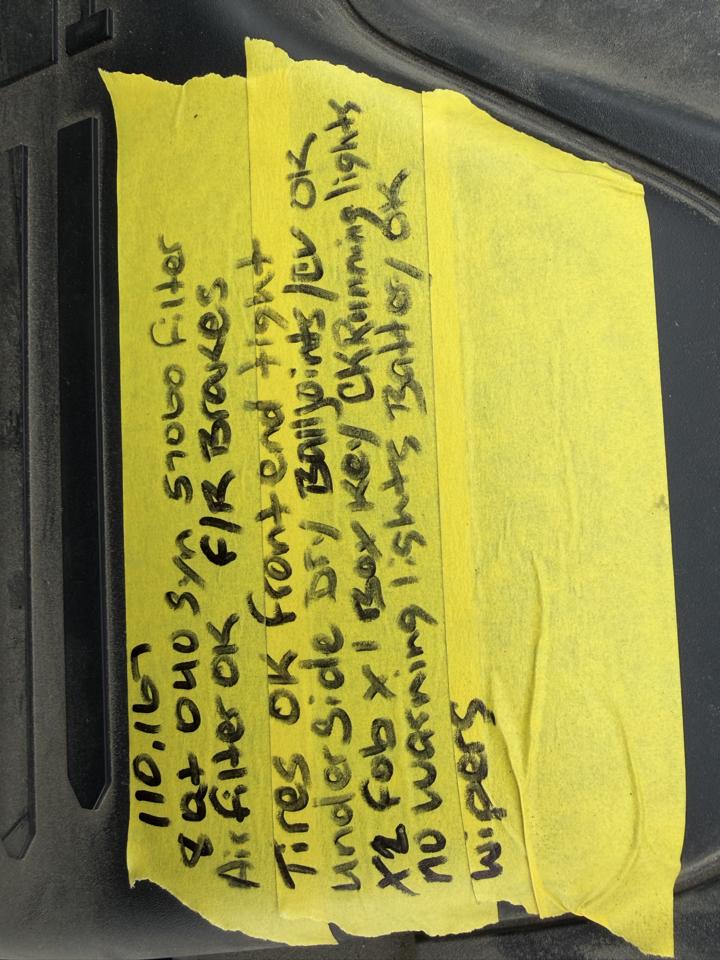 110,165
8 qt 0W40 Syn 57060 filter
Air filter OK F/R Brakes
Tires OK front end tight
underside Dry Balljoints/CV OK
X2 Fob X1 Box Key CK Running lights
no warning lights Battery OK
wipers